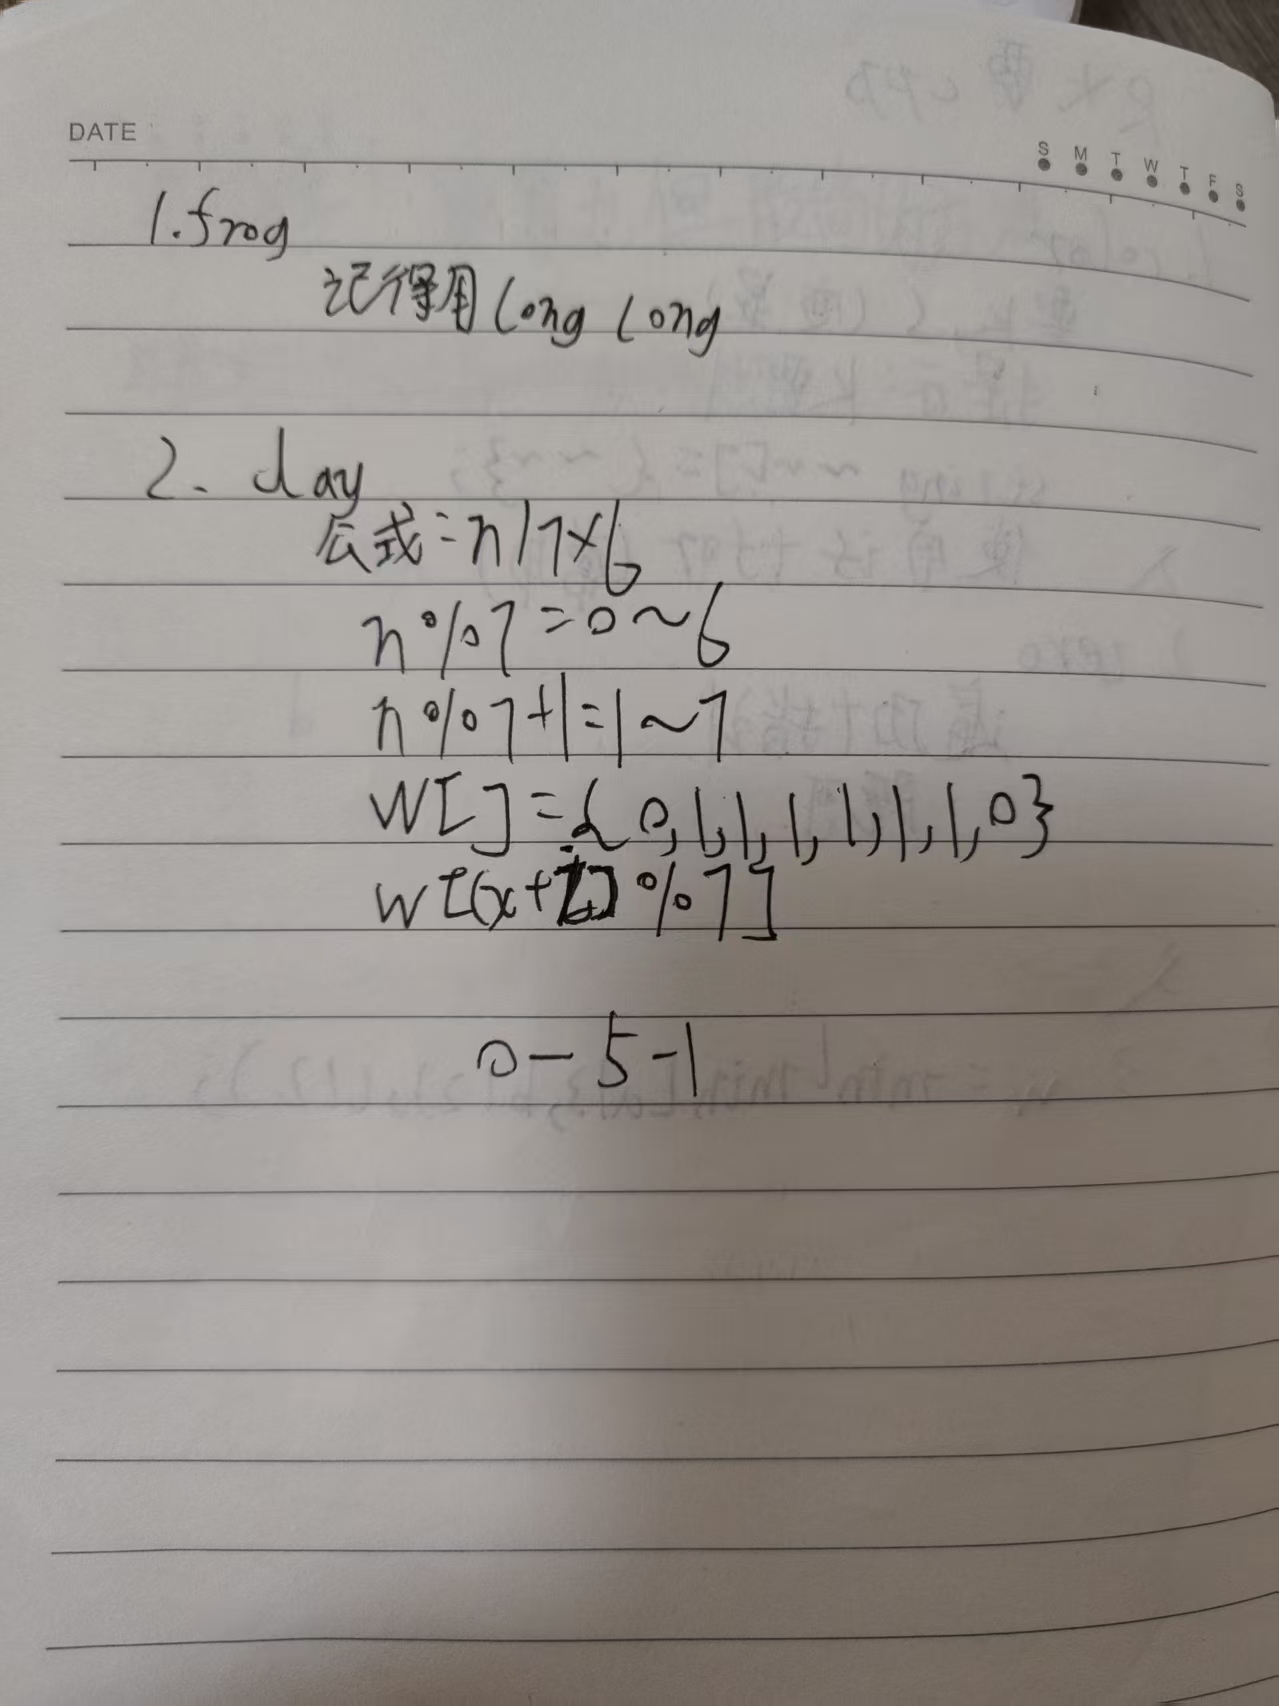 DATE
S M T W T F S
1. frog
记得用 long long
2. day
公式: n/7×6
n%7=0~6
n%7+1=1~7
W[]={0,1,1,1,1,1,1,0}
W[(x+i)%7]
0-5-1